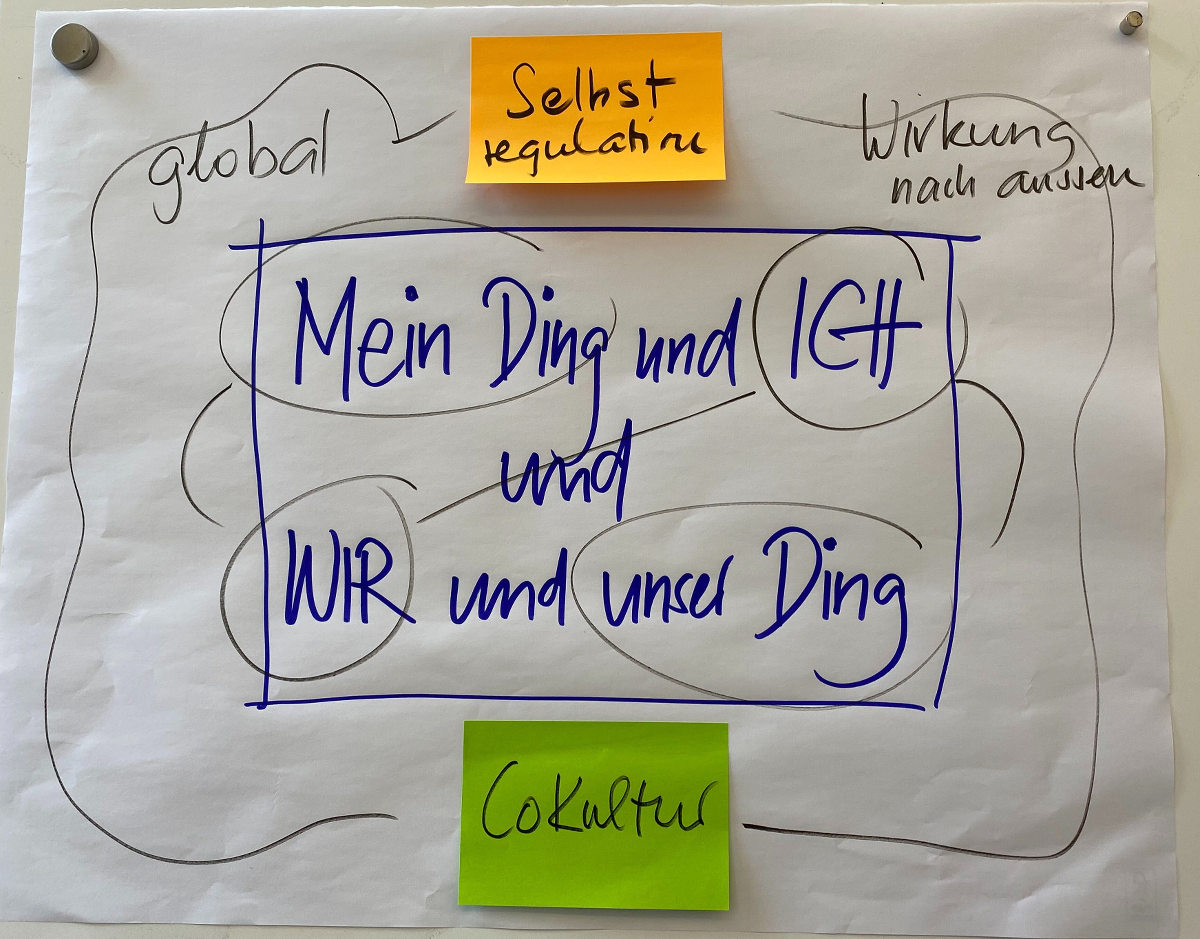 Selbst
regulation
global
Wirkung
nach aussen
Mein Ding und ICH
und
WIR und unser Ding
CoKultur